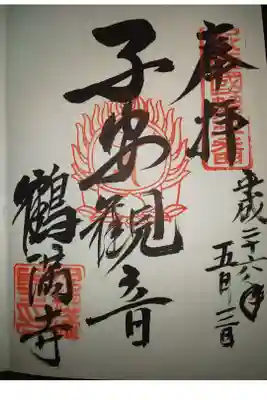 奉拝
平成二十六年
五月三日
子安觀音
鶴満寺